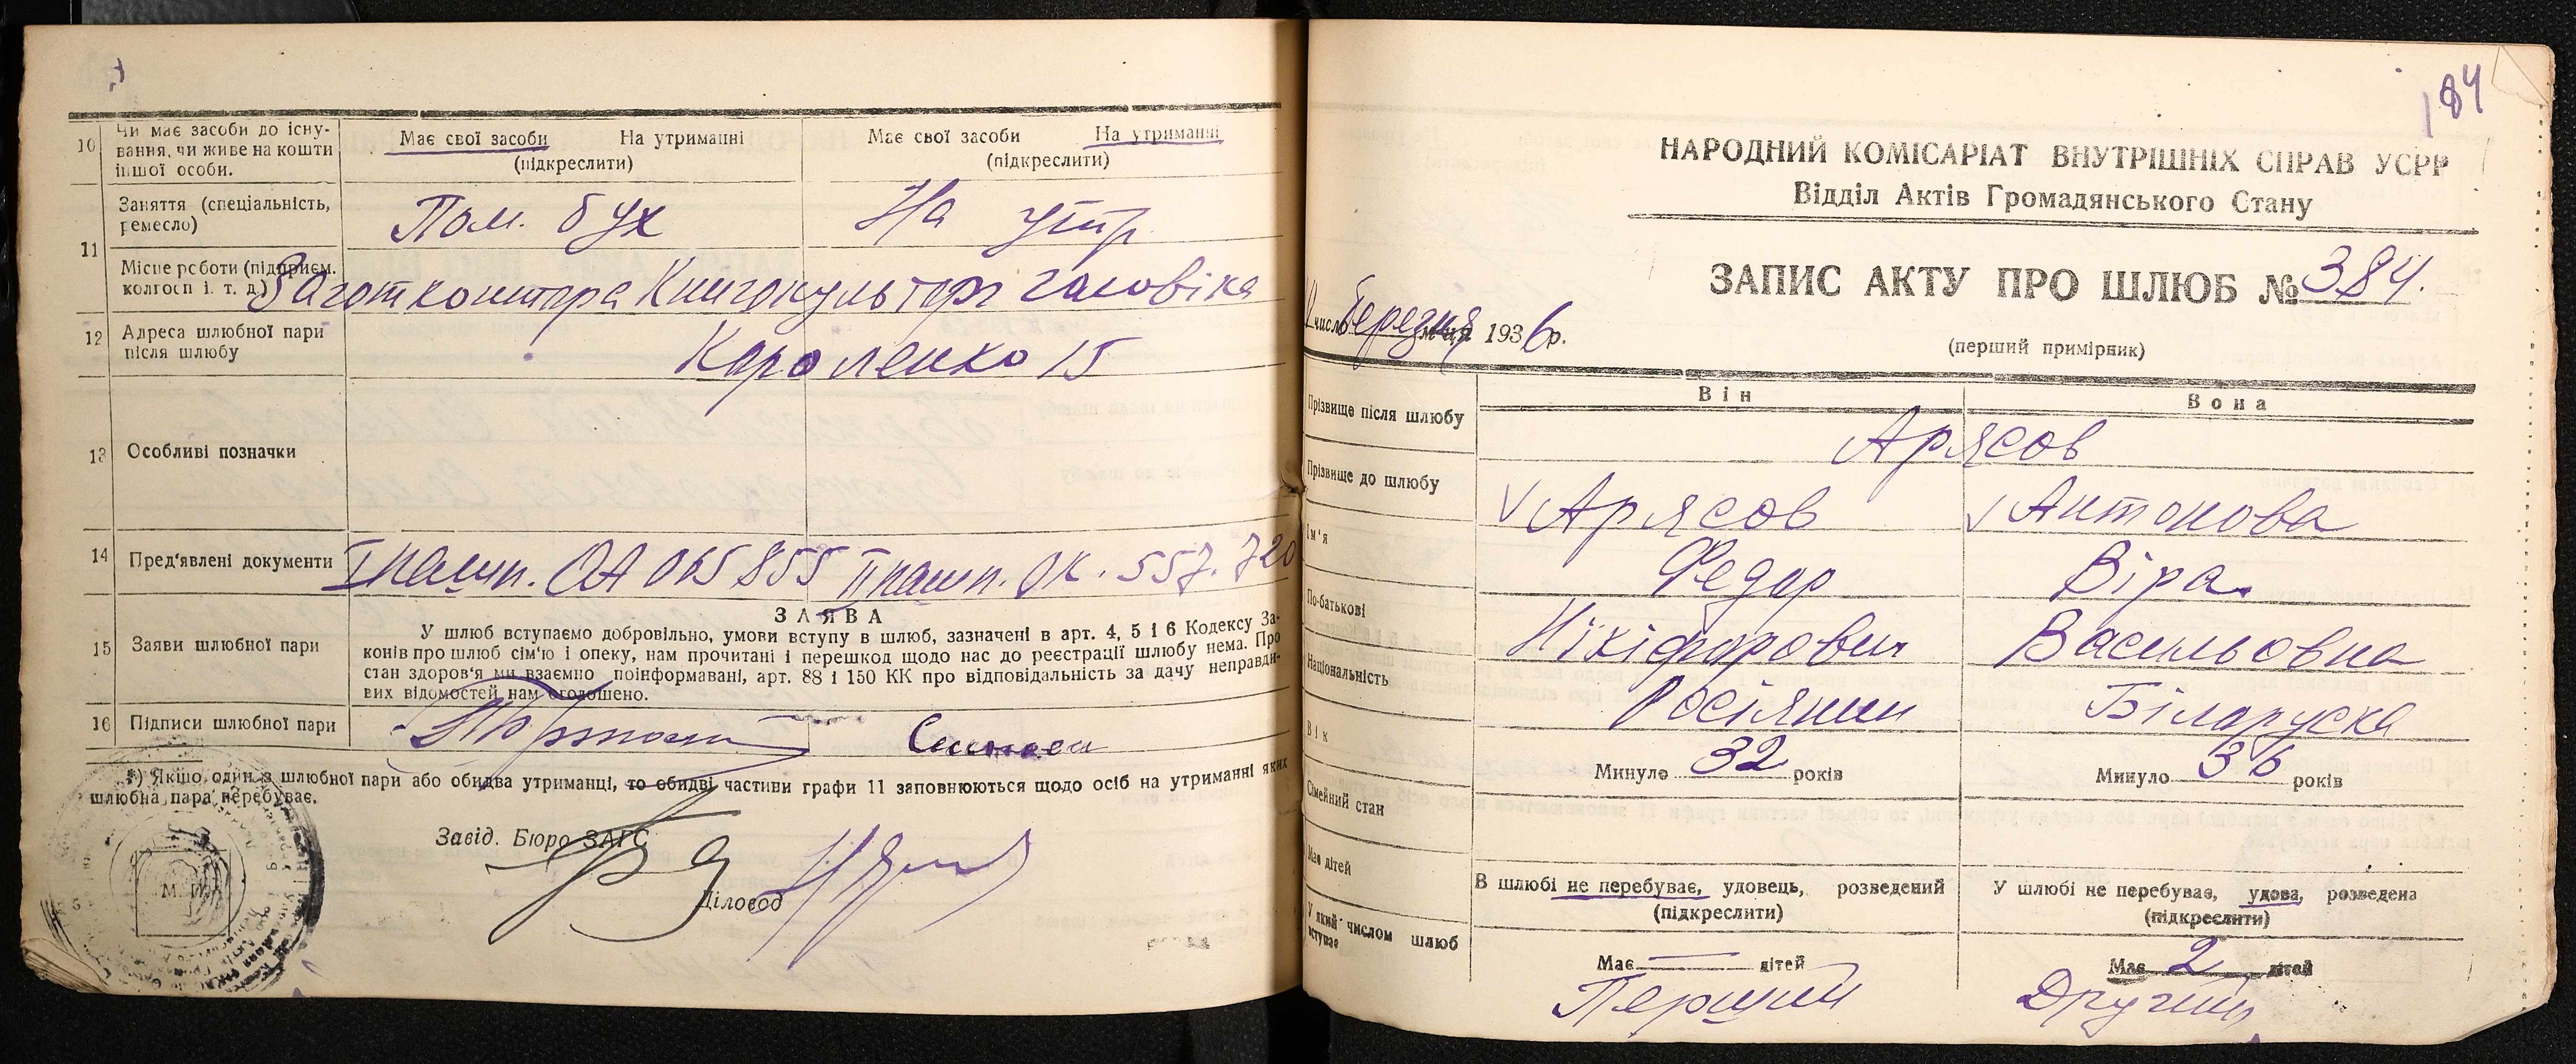 10
Чи має засоби до існу-
вання, чи живе на кошти
іншої особи.
Має свої засоби На утриманні
(підкреслити)
Має свої засоби На утриманні
(підкреслити)
11
Заняття (спеціальність,
ремесло)
Пом. бух
На утр.
Місце роботи (підприєм.
колгосп і. т. д.)
Заготконтора Книгокультторг галовіка
12
Адреса шлюбної пари
після шлюбу
Короленко 15
13
Особливі позначки
14
Пред'явлені документи
І пашп. ОА 065855 ІІ пашп. ОК. 557.720
15
Заяви шлюбної пари
ЗАЯВА
У шлюб вступаємо добровільно, умови вступу в шлюб, зазначені в арт. 4, 5 і 6 Кодексу За-
конів про шлюб сім'ю і опеку, нам прочитані і перешкод щодо нас до реєстрації шлюбу нема. Про
стан здоров'я ми взаємно поінформавані, арт. 88 і 150 КК про відповідальність за дачу неправди-
вих відомостей нам оголошено.
16
Підписи шлюбної пари
*) Якщо один з шлюбної пари або обидва утриманці, то обидві частини графи 11 заповнюються щодо осіб на утриманні яких
шлюбна пара перебуває.
Завід. Бюро ЗАГС
Діловод
М. П.
184
НАРОДНИЙ КОМІСАРІАТ ВНУТРІШНІХ СПРАВ УСРР
Відділ Актів Громадянського Стану
ЗАПИС АКТУ ПРО ШЛЮБ № 384.
число Березня м-ця 1936 р.
(перший примірник)
Він
Вона
Прізвище після шлюбу
Арясов
Прізвище до шлюбу
Арясов
Антонова
Ім'я
Федор
Віра
По-батькові
Нікіфорович
Васильовна
Національність
Росіянин
Біларуска
Вік
Минуло 32 років
Минуло 36 років
Сімейний стан
В шлюбі не перебуває, удовець, розведений
(підкреслити)
У шлюбі не перебуває, удова, розведена
(підкреслити)
Має дітей
Має — дітей
Має 2 дітей
У який числом шлюб
вступає
Перший
Другий